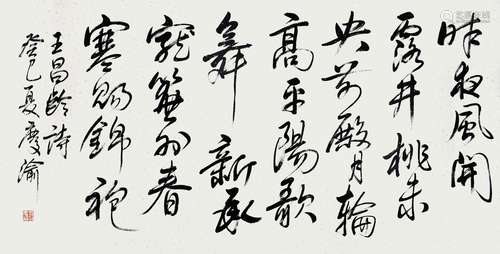 昨夜風開
露井桃未
央前殿月輪
高平陽歌
舞新承
寵簾外春
寒賜錦袍
王昌齡詩
癸巳夏慶渝